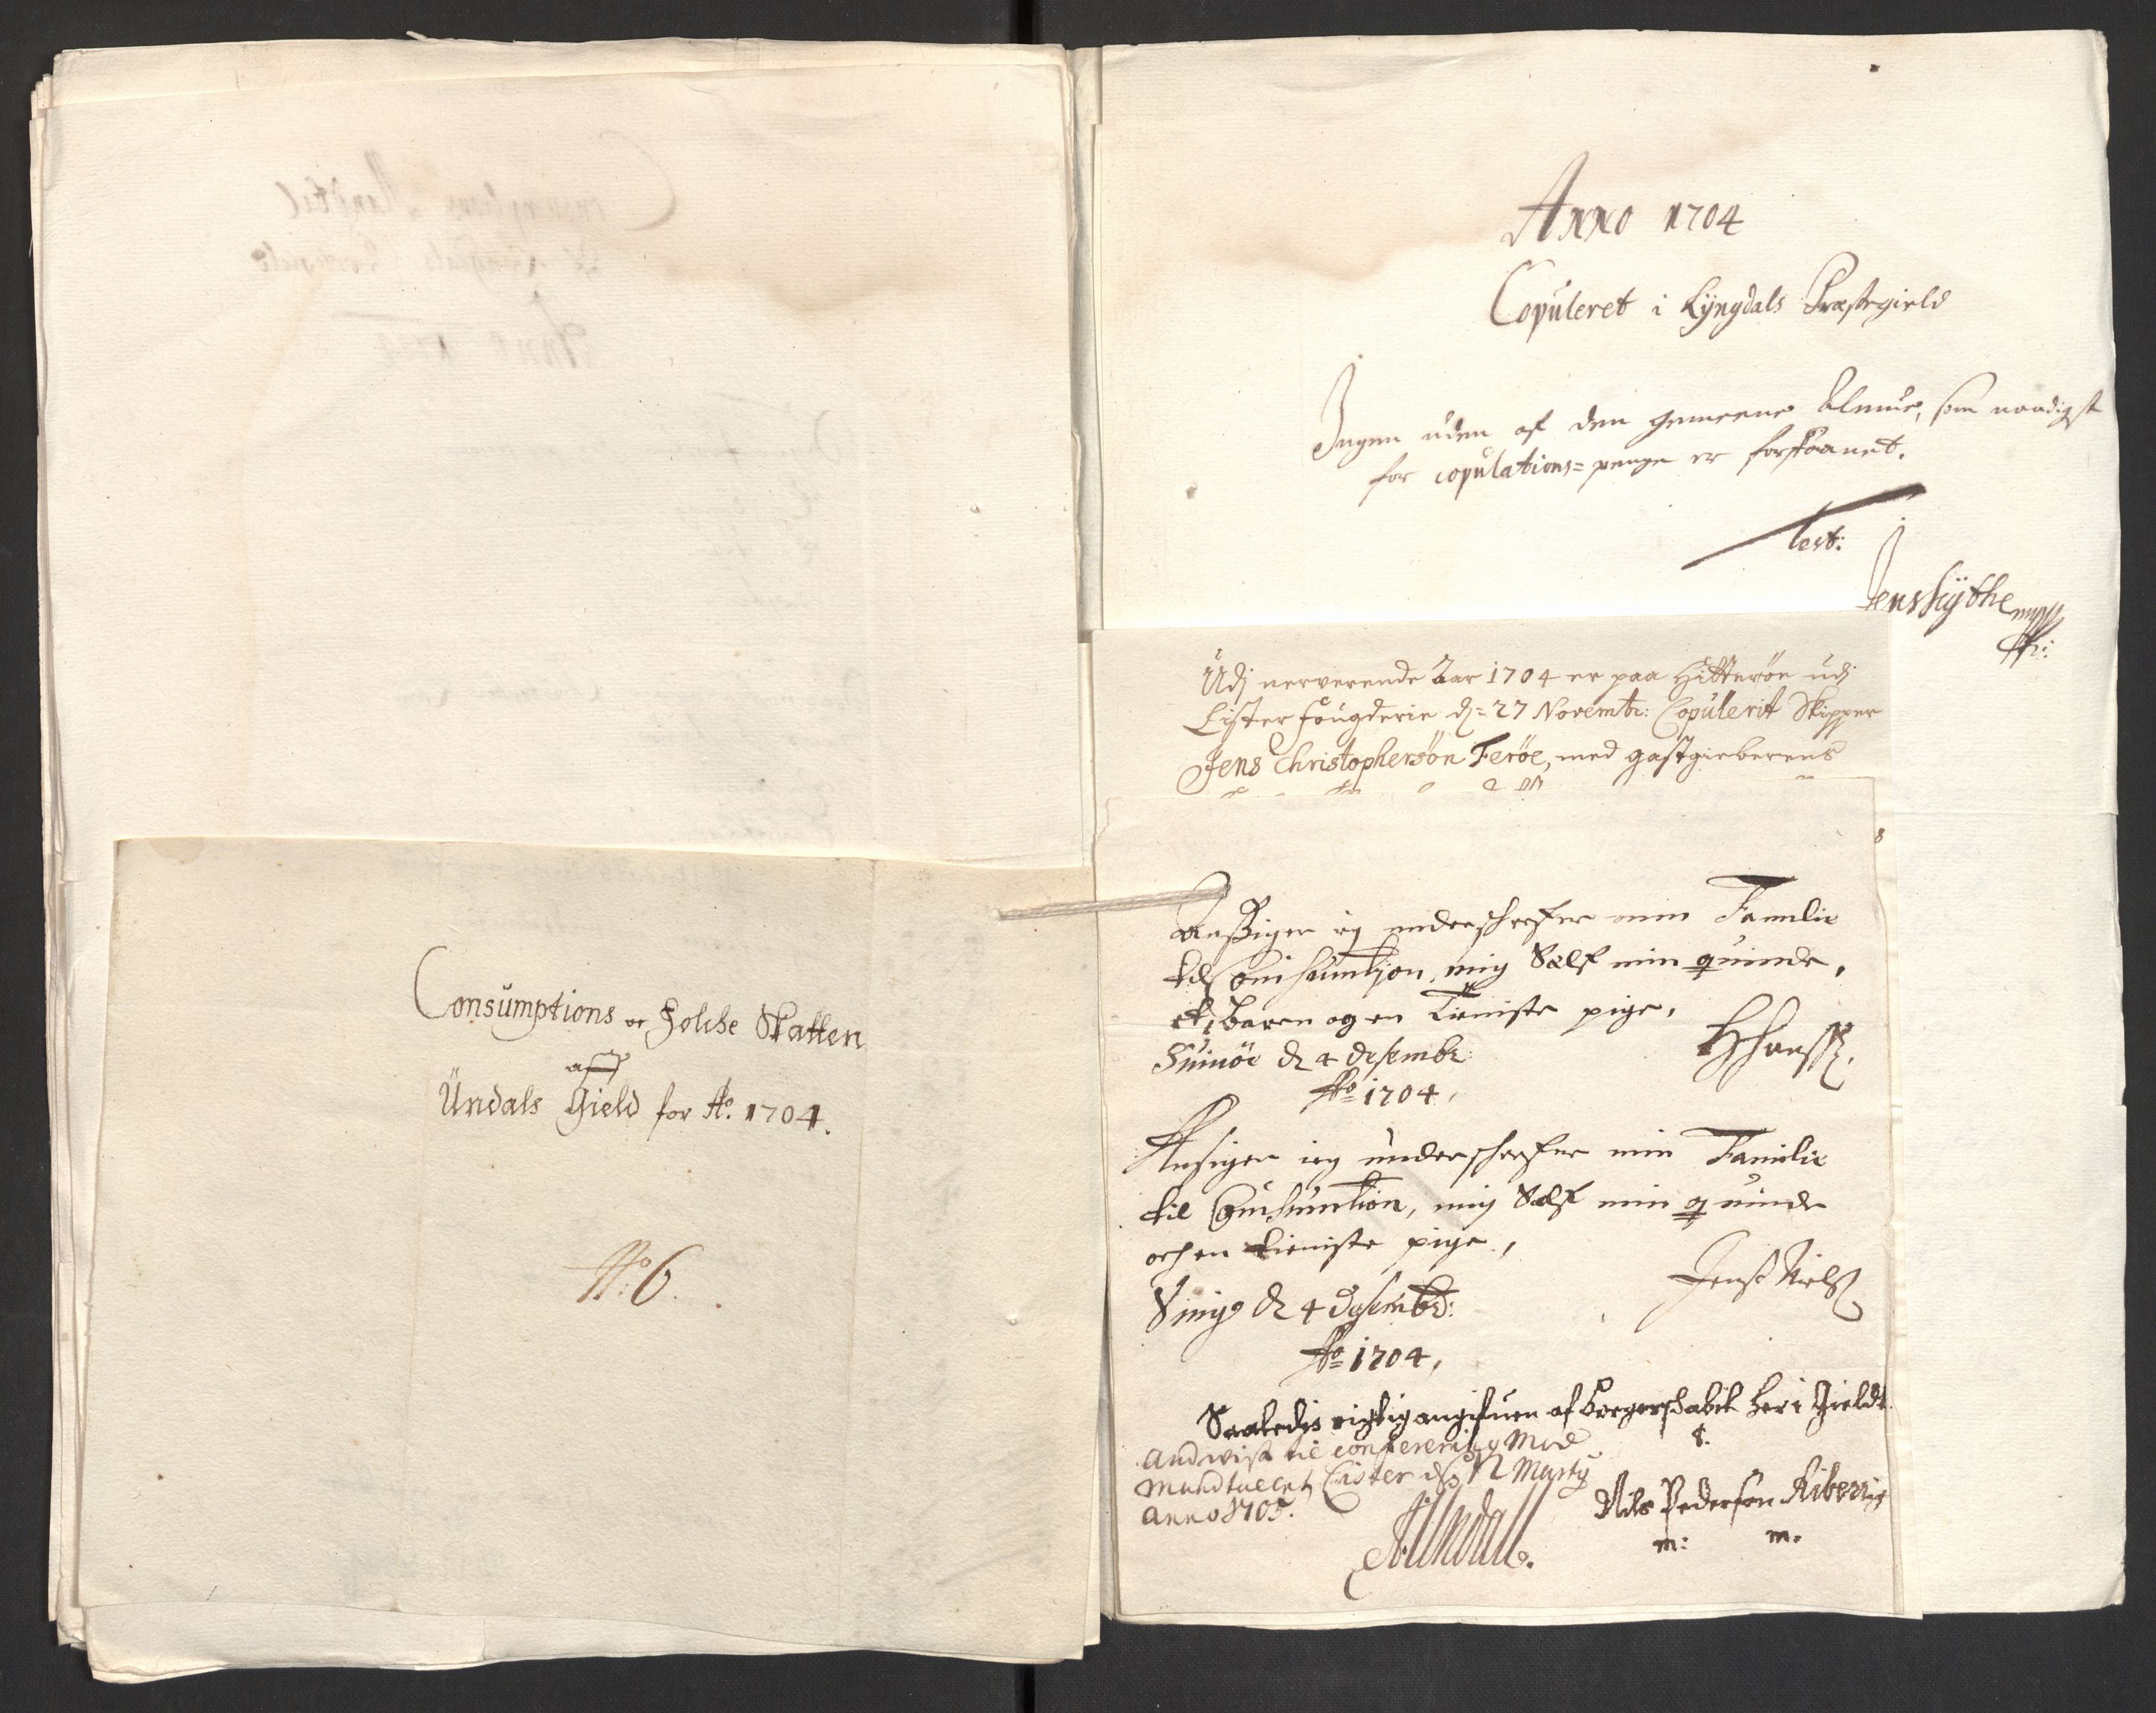 Consumptions oc Folche Skatten
af
Undals Gield for Ao. 1704.
No. 6.
Anno 1704
Copuleret i Lyngdals Præstegield
Ingen uden af den gemeene Almue, som naadigst
for copulations=penge er forskaanet.
Test:
Udj nerverende Aar 1704 er paa Hitterøe udj
Lister fougderie d: 27 Novembr: Copulerit Skipper
Jens Christophersøn Ferøe, med gastgieberens
Angiger ieg underschrefne min Familie
til Conhsumtjon, mig Sælf min quinde,
et baren og en tieniste pige,
Suinøe d 4 desembr:
Ao 1704,
Ansiger ieg underschrefne min Familie
til Conhsumtion, mig Sælf min quinde
och en tieniste pige,
d 4 desembr:
Jens Niels
Ao 1704,
Saaledis rigtig angifuen af borgerskabit her i Gieldt
Andvist til conferering Med
Mandtallet, Lister d 12 Marty
Anno 1705.
Nils Pedersøn Riber
m: m.